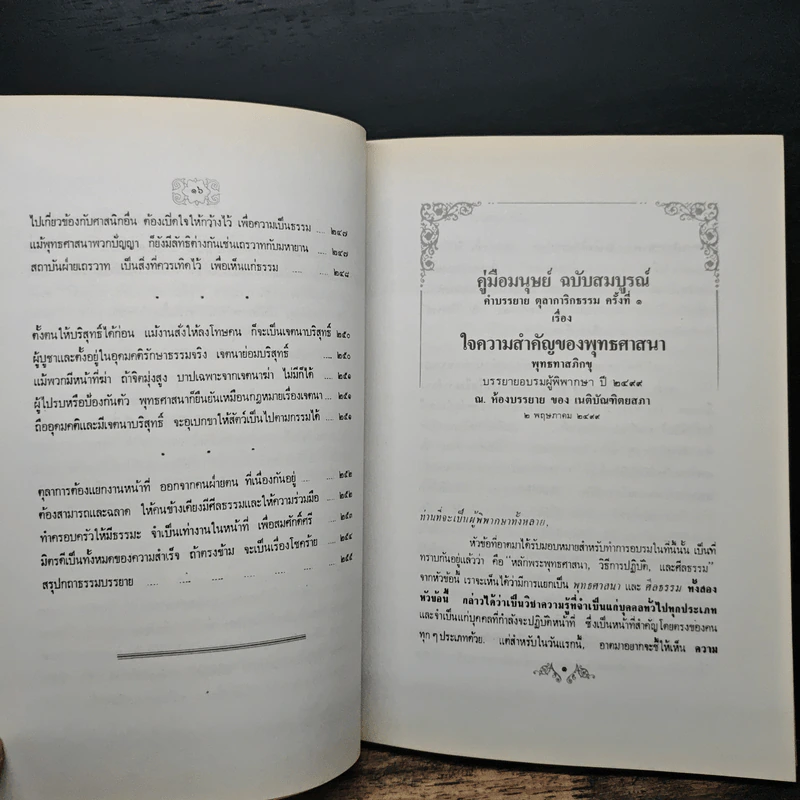 ๑๖
ไปเกี่ยวข้องกับศาสนิกอื่น ต้องเปิดใจให้กว้างไว้ เพื่อความเป็นธรรม .... ๒๔๗
แม้พุทธศาสนาพวกปัญญา ก็ยังมีลัทธิต่างกันเช่นเถรวาทกับมหายาน .... ๒๔๗
สถาบันฝ่ายเถรวาท เป็นสิ่งที่ควรเทิดไว้ เพื่อเห็นแก่ธรรม .... ๒๔๘
ตั้งตนให้บริสุทธิ์ได้ก่อน แม้งานสั่งให้ลงโทษคน ก็จะเป็นเจตนาบริสุทธิ์ ๒๕๐
ผู้บูชาและตั้งอยู่ในอุดมคติรักษาธรรมจริง เจตนาย่อมบริสุทธิ์ .... ๒๕๐
แม้พวกมีหน้าที่ฆ่า ถ้าจิตมุ่งสูง บาปเฉพาะจากเจตนาฆ่า ไม่มีก็ได้ .... ๒๕๑
ผู้ไปรบหรือป้องกันตัว พุทธศาสนาก็ยืนยันเหมือนกฎหมายเรื่องเจตนา ๒๕๑
ถืออุดมคติและมีเจตนาบริสุทธิ์ จะอุเบกขาให้สัตว์เป็นไปตามกรรมได้ .... ๒๕๑
ตุลาการต้องแยกงานหน้าที่ ออกจากคนฝ่ายตน ที่เนื่องกันอยู่ .... ๒๕๒
ต้องสามารถและฉลาด ให้คนข้างเคียงมีศีลธรรมและให้ความร่วมมือ .... ๒๕๒
ทำครอบครัวให้มีธรรมะ จำเป็นเท่างานในหน้าที่ เพื่อสมศักดิ์ศรี .... ๒๕๓
มิตรดีเป็นทั้งหมดของความสำเร็จ ถ้าตรงข้าม จะเป็นเรื่องโชคร้าย .... ๒๕๔
สรุปกถาธรรมบรรยาย .... .... .... .... ๒๕๕
คู่มือมนุษย์ ฉบับสมบูรณ์
คำบรรยาย ตุลาการิกธรรม ครั้งที่ ๑
เรื่อง
ใจความสำคัญของพุทธศาสนา
พุทธทาสภิกขุ
บรรยายอบรมผู้พิพากษา ปี ๒๔๙๙
ณ. ห้องบรรยาย ของ เนติบัณฑิตยสภา
๒ พฤษภาคม ๒๔๙๙
ท่านที่จะเป็นผู้พิพากษาทั้งหลาย,
หัวข้อที่อาตมาได้รับมอบหมายสำหรับทำการอบรมในที่นี้นั้น เป็นที่
ทราบกันอยู่แล้วว่า คือ "หลักพระพุทธศาสนา, วิธีการปฏิบัติ, และศีลธรรม"
จากหัวข้อนี้ เราจะเห็นได้ว่ามีการแยกเป็น พุทธศาสนา และ ศีลธรรม ทั้งสอง
หัวข้อนี้ กล่าวได้ว่าเป็นวิชาความรู้ที่จำเป็นแก่บุคคลทั่วไปทุกประเภท
และจำเป็นแก่บุคคลที่กำลังจะปฏิบัติหน้าที่ ซึ่งเป็นหน้าที่สำคัญโดยตรงของคน
ทุก ๆ ประเภทด้วย. แต่สำหรับในวันแรกนี้, อาตมาอยากจะชี้ให้เห็น ความ
๑